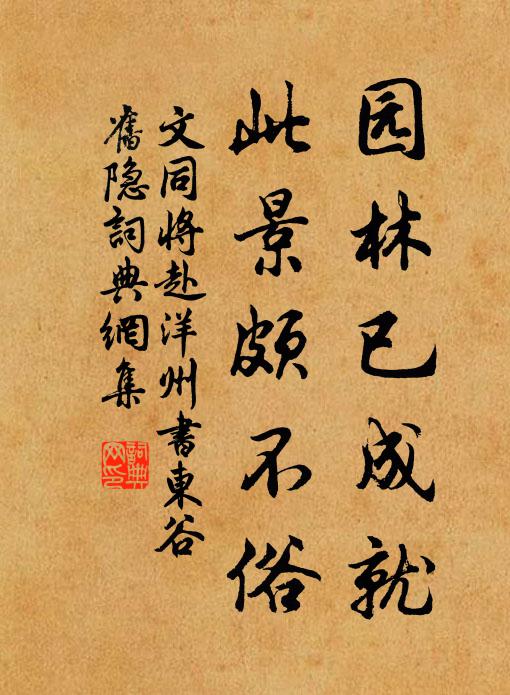 园林已成就
此景颇不俗
文同将赴洋州书东谷
旧隐詞典網集
詞典
网印